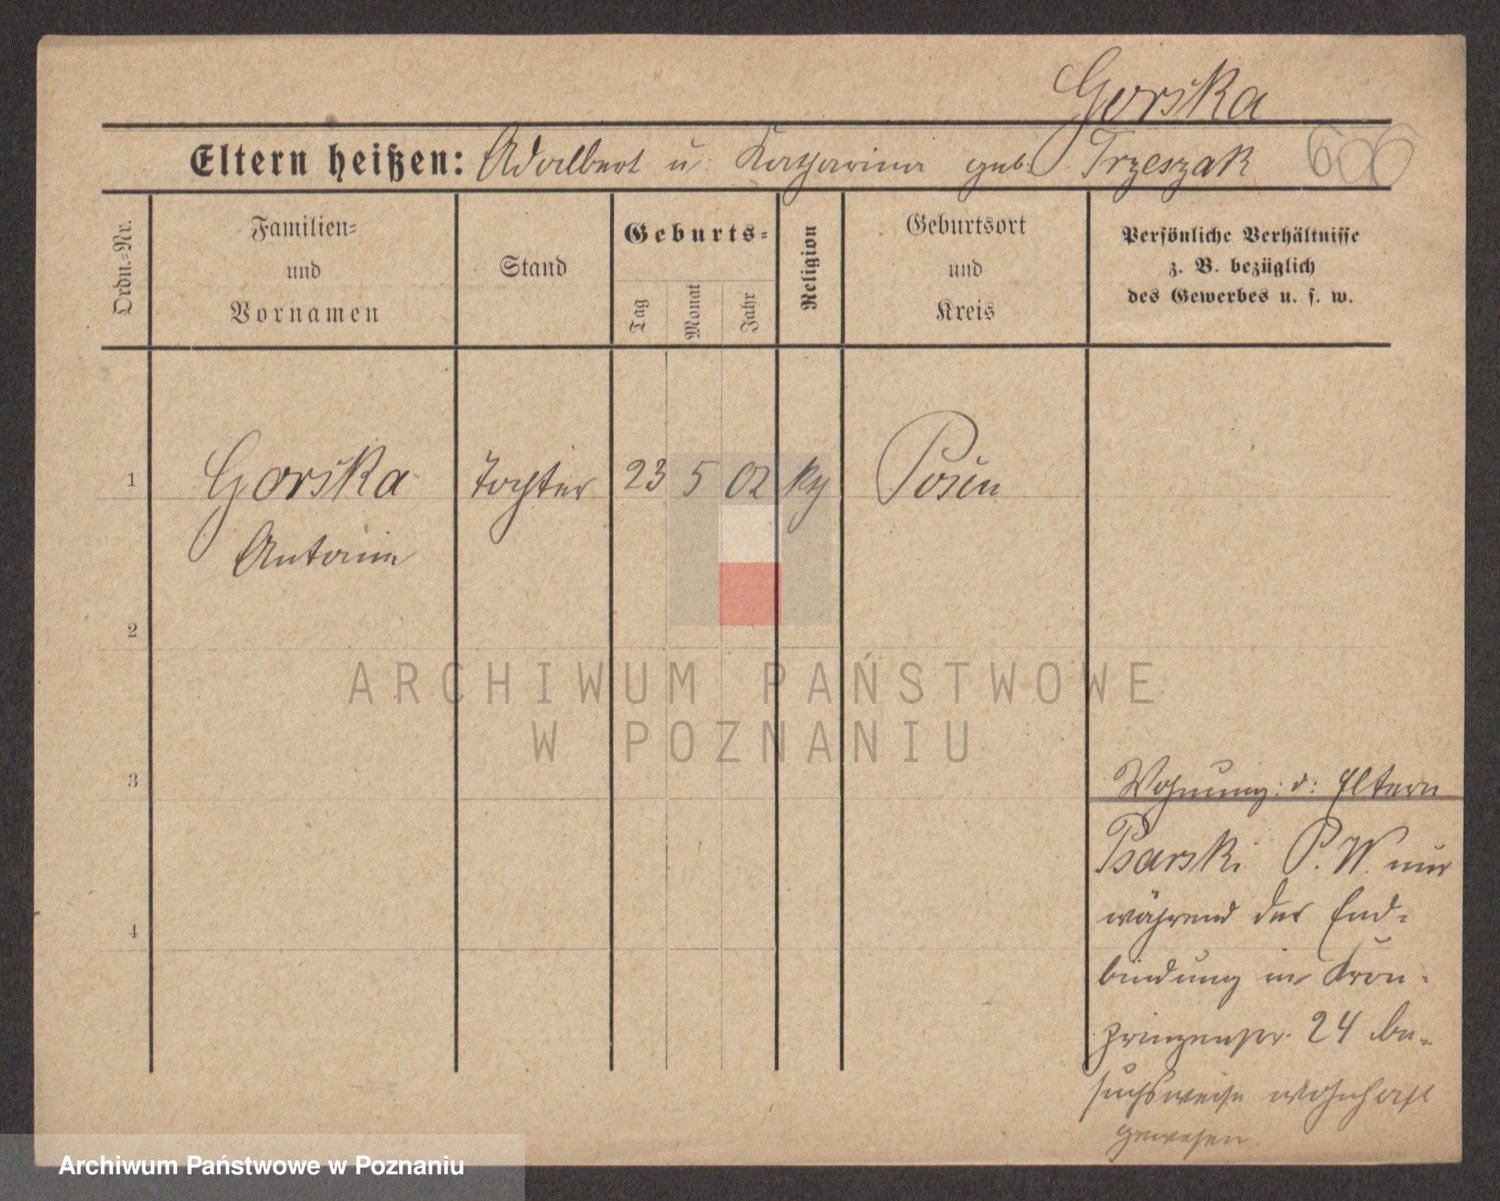 Gorska
Eltern heißen: Adalbert u. Katharina geb. Trzeszak 606
Ordn.=Nr.
Familien=
und
Vornamen
Stand
Geburts=
Tag
Monat
Jahr
Religion
Geburtsort
und
Kreis
Persönliche Verhältnisse
z. B. bezüglich
des Gewerbes u. s. w.
1 Gorska Tochter 23 5 02 Posen
Antonin
2
ARCHIWUM PAŃSTWOWE
W POZNANIU
3
Wohnung: d: Eltern
Psarski P. W. nur
während der End=
4
bindung in Kron=
prinzenstr. 24 be=
suchsweise wohnhaft
gewesen.
Archiwum Państwowe w Poznaniu